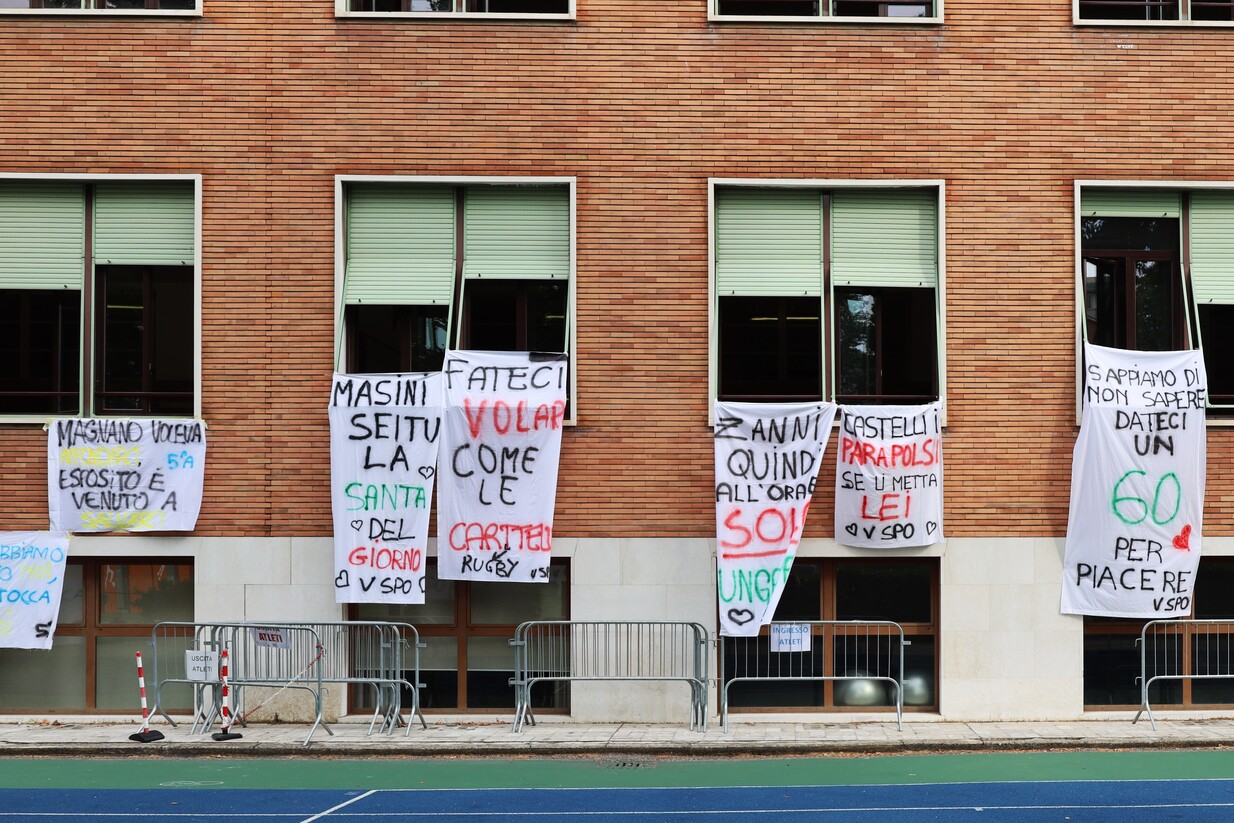 MAGNANO VOLEVA
5ªA
ESPOSITO È
VENUTO A
MASINI
SEI TU
LA
SANTA
DEL
GIORNO
V SPO
FATECI
VOLAR
COME
LE
RUGBY
VSP
ZANNI
QUIND
ALL'ORA
SOL
UNG
CASTELLI I
PARAPOLSI
SE LI METTA
LEI
V SPO
SAPPIAMO DI
NON SAPERE
DATECI
UN
60
PER
PIACERE
V SPO
BBIAMO
TOCCA
USCITA
ATLETI
ATLETI
INGRESSO
ATLETI